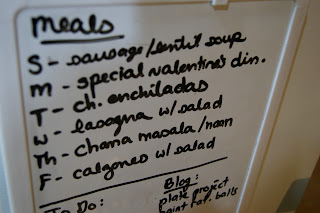 meals
S - sausage/lentil soup
M - special valentine's din.
T - ch. enchiladas
W - lasagna w/ salad
Th - chana masala/naan
F - calzones w/ salad
To Do:
Blog:
plate project
paint rat. balls